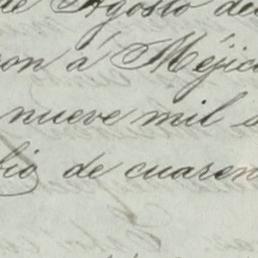 de Agosto de
con á Méjico
nueve mil s
bio de cuaren